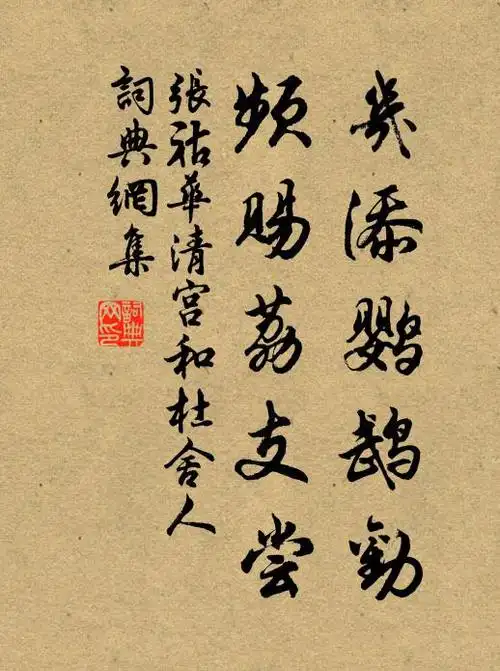 幾添鸚鵡勸
頻賜荔支尝
張祜華清宮和杜舍人
詞典網集
詞典网印